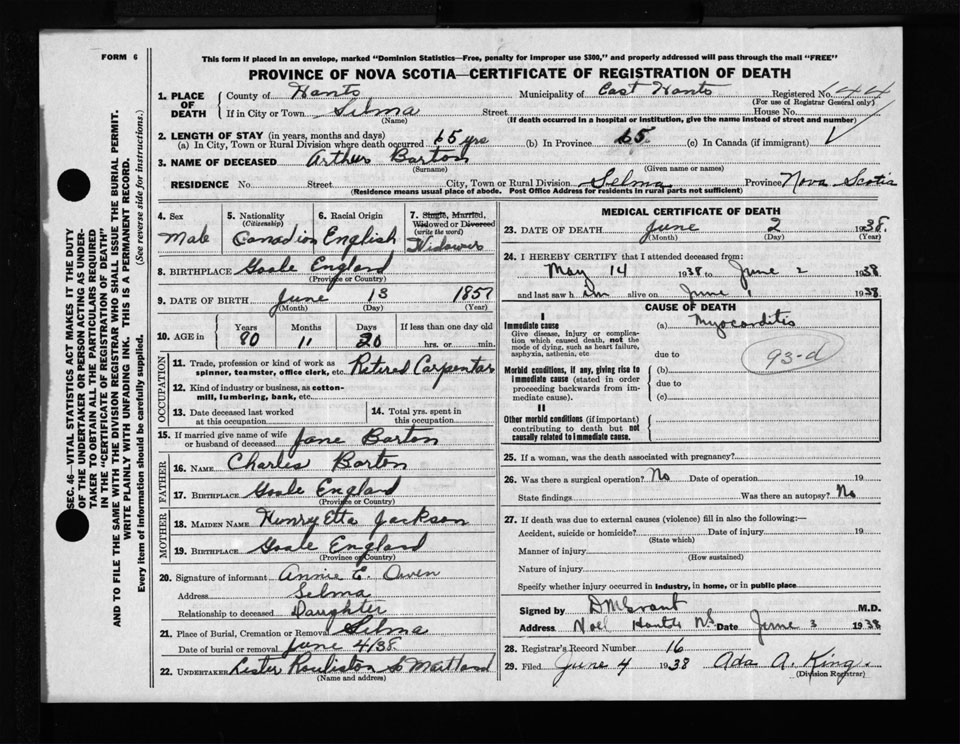 FORM 6
This form if placed in an envelope, marked "Dominion Statistics—Free, penalty for improper use $300," and properly addressed will pass through the mail "FREE"
PROVINCE OF NOVA SCOTIA—CERTIFICATE OF REGISTRATION OF DEATH
SEC. 46—VITAL STATISTICS ACT MAKES IT THE DUTY
OF THE UNDERTAKER OR PERSON ACTING AS UNDER-
TAKER TO OBTAIN ALL THE PARTICULARS REQUIRED
IN THE "CERTIFICATE OF REGISTRATION OF DEATH"
AND TO FILE THE SAME WITH THE DIVISION REGISTRAR WHO SHALL ISSUE THE BURIAL PERMIT.
WRITE PLAINLY WITH UNFADING INK. THIS IS A PERMANENT RECORD.
Every item of information should be carefully supplied. (See reverse side for instructions.)
1. PLACE OF DEATH
County of Hants Municipality of East Hants Registered No. 44
(For use of Registrar General only)
If in City or Town Selma Street House No.
(Name) (If death occurred in a hospital or institution, give the name instead of street and number)
2. LENGTH OF STAY (in years, months and days)
(a) In City, Town or Rural Division where death occurred 65 yrs (b) In Province 65 (c) In Canada (if immigrant)
3. NAME OF DECEASED Arthur Barton
(Surname) (Given name or names)
RESIDENCE No. Street City, Town or Rural Division Selma Province Nova Scotia
(Residence means usual place of abode. Post Office Address for residents in rural parts not sufficient)
4. Sex
Male
5. Nationality
(Citizenship)
Canadian
6. Racial Origin
English
7. Single, Married,
Widowed or Divorced
(write the word)
Widower
8. BIRTHPLACE Goole England
(Province or Country)
9. DATE OF BIRTH June 13 1857
(Month) (Day) (Year)
10. AGE in
Years Months Days If less than one day old
80 11 20 hrs. or min.
OCCUPATION
11. Trade, profession or kind of work as
spinner, teamster, office clerk, etc. Retired Carpenter
12. Kind of industry or business, as cotton-
mill, lumbering, bank, etc.
13. Date deceased last worked
at this occupation
14. Total yrs. spent in
this occupation
15. If married give name of wife
or husband of deceased Jane Barton
FATHER
16. NAME Charles Barton
17. BIRTHPLACE Goole England
(Province or Country)
MOTHER
18. MAIDEN NAME Henry Etta Jackson
19. BIRTHPLACE Goole England
(Province or Country)
20. Signature of informant Annie E. Owen
Address Selma
Relationship to deceased Daughter
21. Place of Burial, Cremation or Removal Selma
Date of burial or removal June 4/38
22. UNDERTAKER Lester So Maitland
(Name and address)
MEDICAL CERTIFICATE OF DEATH
23. DATE OF DEATH June 2 1938.
(Month) (Day) (Year)
24. I HEREBY CERTIFY that I attended deceased from:
May 14 1938 to June 2 1938
and last saw him alive on June 1 1938
CAUSE OF DEATH
I
Immediate cause
Give disease, injury or complica-
tion which caused death, not the
mode of dying, such as heart failure,
asphyxia, asthenia, etc
(a) Myocarditis
93-d
due to
Morbid conditions, if any, giving rise to
immediate cause (stated in order
proceeding backwards from im-
mediate cause).
(b)
due to
(c)
II
Other morbid conditions (if important)
contributing to death but not
causally related to immediate cause.
25. If a woman, was the death associated with pregnancy?
26. Was there a surgical operation? No Date of operation 19
State findings Was there an autopsy? No
27. If death was due to external causes (violence) fill in also the following:—
Accident, suicide or homicide? Date of injury 19
(State which)
Manner of injury
(How sustained)
Nature of injury
Specify whether injury occurred in industry, in home, or in public place
Signed by M.D.
Address Noel Hants NS Date June 3 1938
28. Registrar's Record Number 16
29. Filed June 4 1938 Ada A. King.
(Division Registrar)